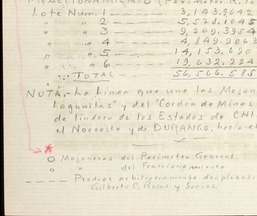 FRACCIONAMIENTO (Perimetro R. 
Lote Num. 1 --- 3,143,9042
" " 2 --- 5,528,1045
" " 3 --- 9,209,3954
" " 4 --- 4,849,2063
" " 5 --- 14,153,620
" " 6 --- 19,632,224
TOTAL --- 56,506,585
NOTA.- La Linea que une las Mojon
Lagunitas" y del "Cordon de Minas
de lindero de los Estados de CHI
el Noroeste y de DURANGO, hacia el
o Mojoneras del Perimetro General
o " del Fraccionamiento
---- Predios arbitrariamente desplazado
Gilberto C. Rosas y Socios.